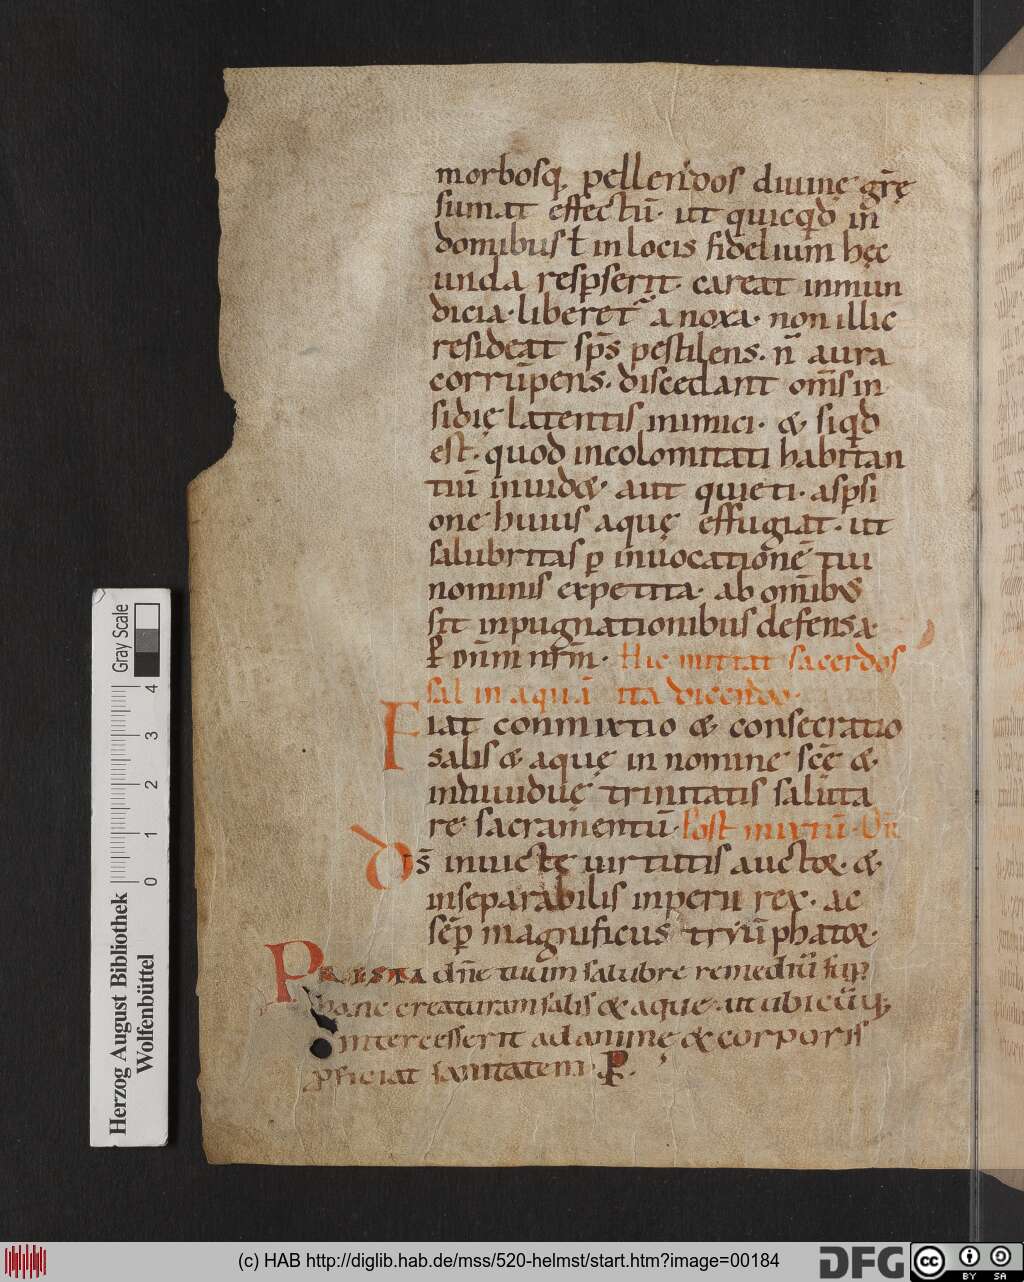 morbosq; pellendos diuinę gr̄ę
sumat effectū· ut quicqd̄ in
domibus ƚ in locis fidelium hęc
unda resp̱serit· careat inmun
dicia· liberet᷒ a noxa· non illic
resideat sp̄s pestilens· n̄ aura
corrūpens· discedant om̄s in
sidię latentis inimici· & siqd̄
est· quod incolomitati habitan
tiū inuidet· aut quieti· asp̱si
one huius aquę effugiat· ut
salubritas ꝑ inuocationē tui
nominis expetita· ab om̄ibus
sit inpugnationibus defensa·
ꝑ dn̄m nr̄m· Hic mittat sacerdos
sal in aquā ita dicendo·
Fiat conmixtio & consecratio
salis & aquę in nomine scę̄ &
indiuiduę trinitatis saluta
re sacramentū· Post mixtū· Or̄
Ds̄ inuictę uirtutis auctor· &
inseparabilis inperii rex· ac
sēꝑ magnificus tryūphator·
Pręsta dn̄e tuum salubre remediū sup̱
hanc creaturam salis & aque· ut ubicūq;
intercesserit ad animę & corporis
ꝓficiat sanitatem P̱.
Gray Scale
0 1 2 3 4
Herzog August Bibliothek
Wolfenbüttel
(c) HAB http://diglib.hab.de/mss/520-helmst/start.htm?image=00184
DFG
cc BY SA